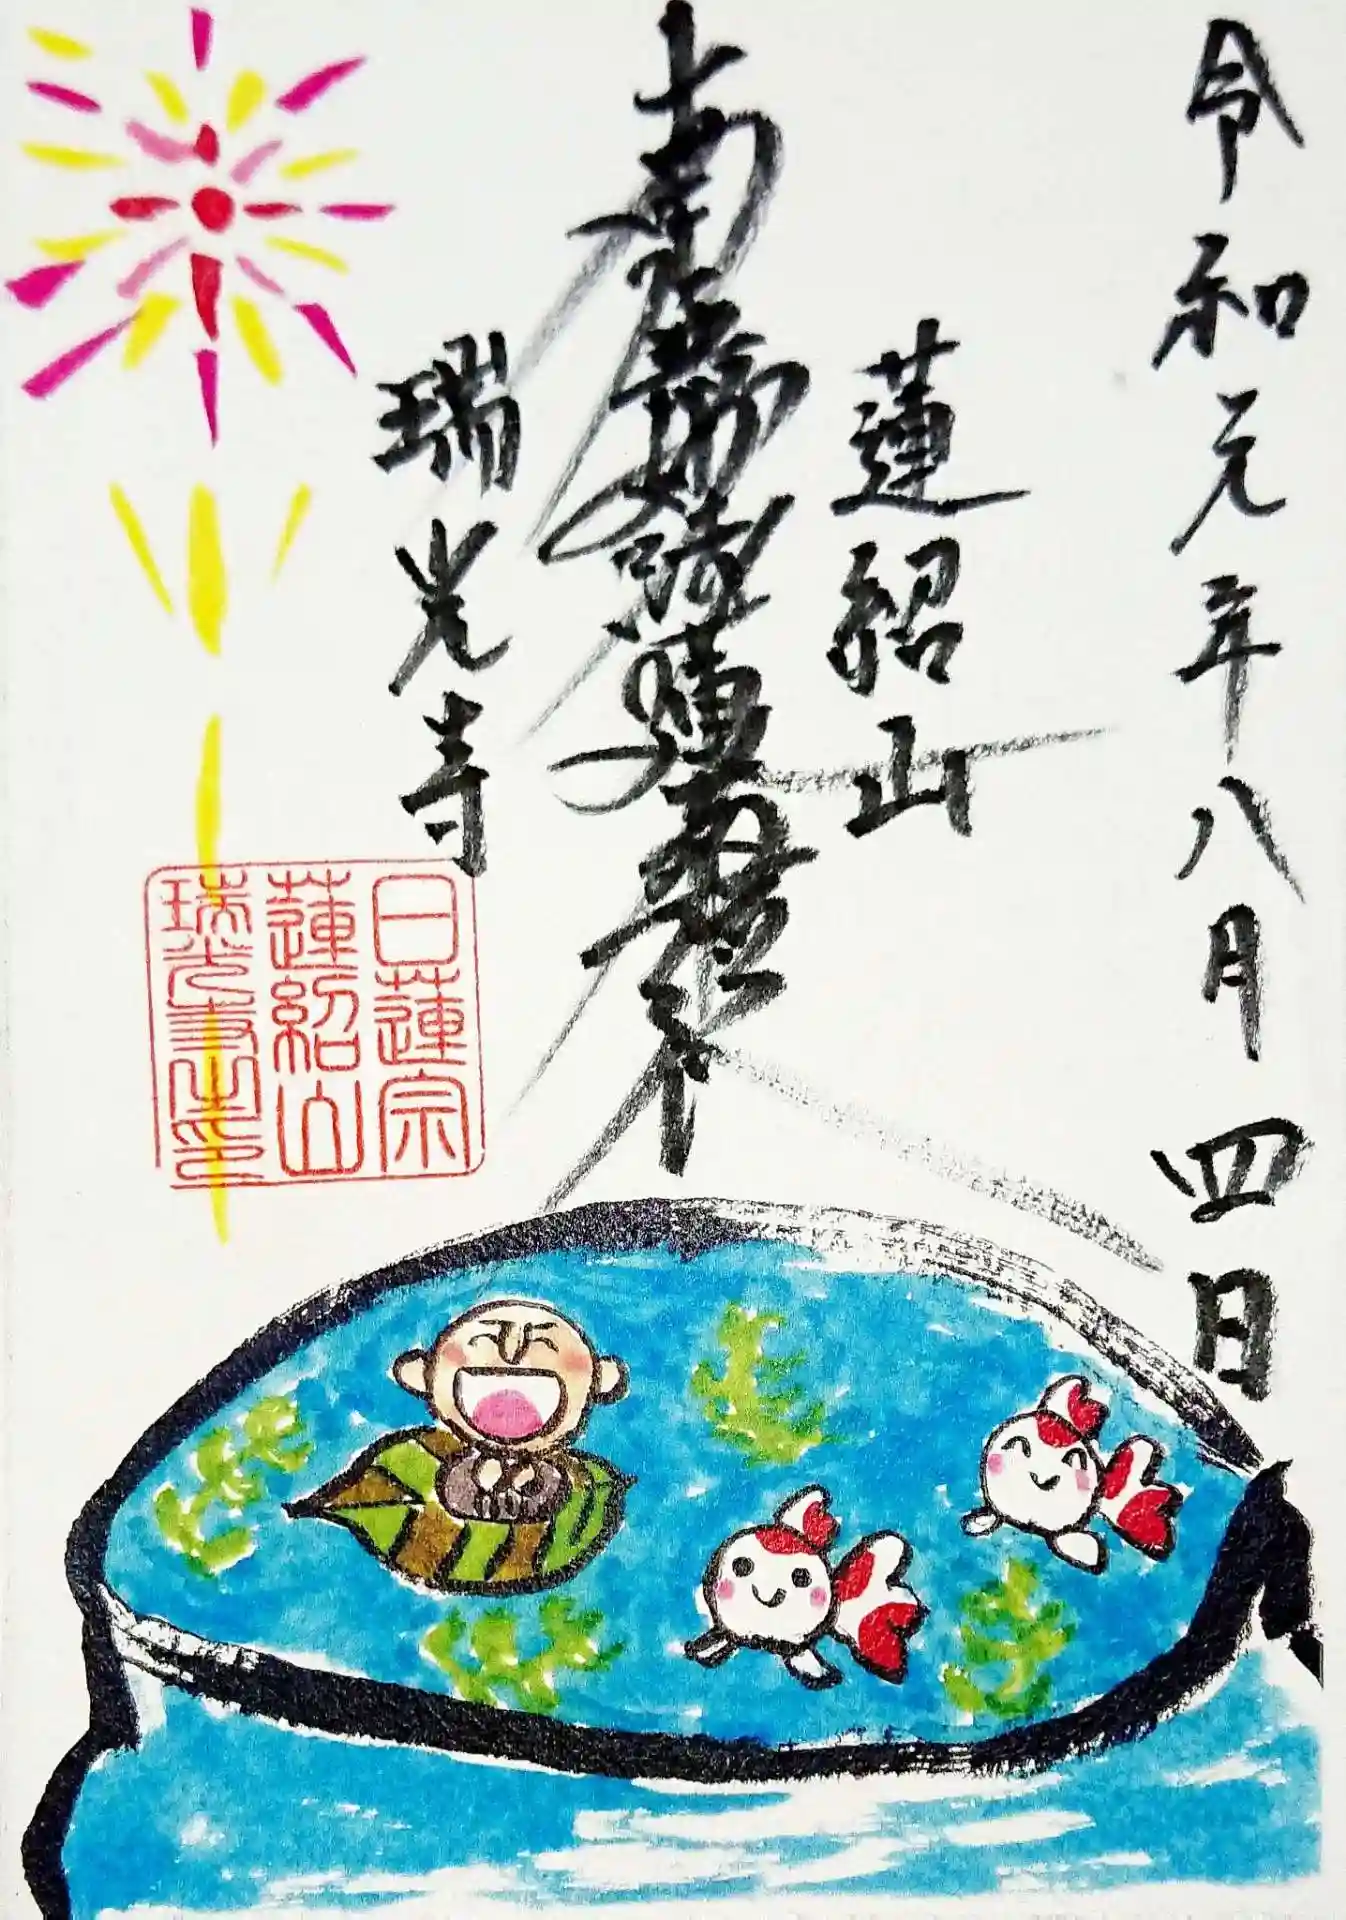 令和元年八月四日
蓮紹山
南無妙法蓮華経
瑞光寺
日蓮宗
蓮紹山
瑞光寺之印